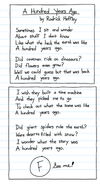 A Hundred Years Ago
by Rodrick Heffley
Sometimes I sit and wonder
About stuff I don't know
Like what the heck the world was like
A hundred years ago.
Did cavemen ride on dinosaurs?
Did flowers even grow?
Well we could guess but that was back
A hundred years ago.
I wish they built a time machine
And they picked me to go
To check out what the scene was like
A hundred years ago.
Did giant spiders rule the earth?
Were deserts filled with snow?
I wonder what the story was
A hundred years ago.
F
See me!